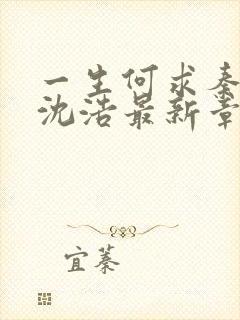 一生何求秦
沈浩最新章
宜蓁